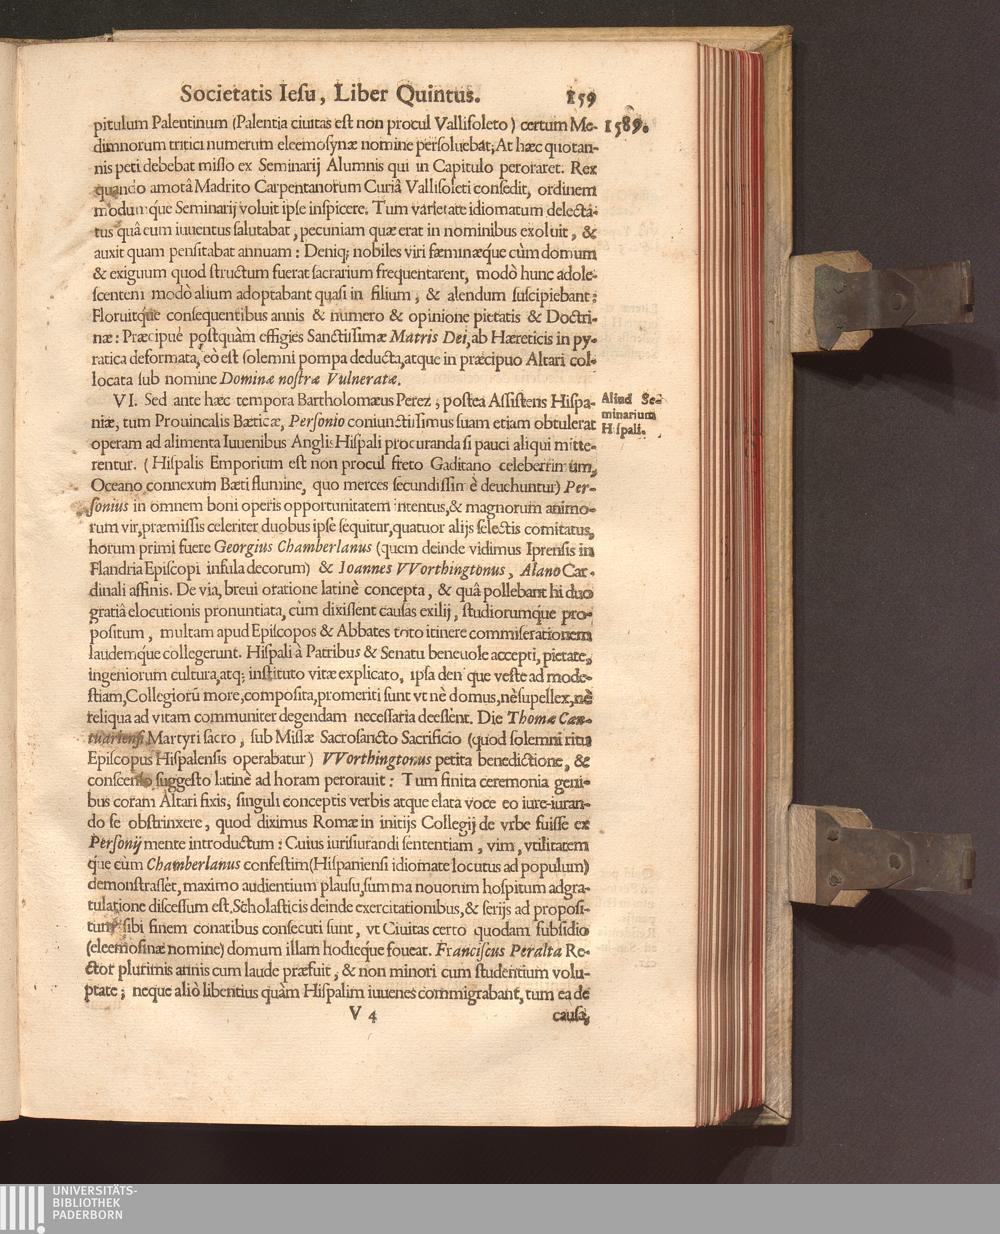 Societatis Iesu, Liber Quintus. 159
pitulum Palentinum (Palentia ciuitas est non procul Vallisoleto) certum Me- 1589.
dimnorum tritici numerum eleemosynæ nomine persoluebat; At hæc quotan-
nis peti debebat misso ex Seminarij Alumnis qui in Capitulo peroraret. Rex
quando amotâ Madrito Carpentanorum Curiâ Vallisoleti consedit, ordinem
modumq́ue Seminarij voluit ipse inspicere. Tum varietate idiomatum delecta-
tus quâ cum iuuentus salutabat, pecuniam quæ erat in nominibus exoluit, &
auxit quam pensitabat annuam: Deniq; nobiles viri fæminæq́ue cùm domum
& exiguum quod structum fuerat sacrarium frequentarent, modò hunc adole-
scentem modò alium adoptabant quasi in filium, & alendum suscipiebant:
Floruitq́ue consequentibus annis & numero & opinione pietatis & Doctri-
næ: Præcipuè postquàm effigies Sanctissimæ Matris Dei, ab Hæreticis in py-
ratica deformata, eò est solemni pompa deducta, atque in præcipuo Altari col-
locata sub nomine Dominæ nostræ Vulneratæ.
VI. Sed ante hæc tempora Bartholomæus Perez, postea Assistens Hispa-
niæ, tum Prouincalis Bæticæ, Personio coniunctissimus suam etiam obtulerat
operam ad alimenta Iuuenibus Anglis Hispali procuranda si pauci aliqui mitte-
rentur. (Hispalis Emporium est non procul freto Gaditano celeberrimum,
Oceano connexum Bæti flumine, quo merces secundissimè deuehuntur) Per-
sonius in omnem boni operis opportunitatem intentus, & magnorum animo-
rum vir, præmissis celeriter duobus ipse sequitur, quatuor alijs selectis comitatus,
horum primi fuere Georgius Chamberlanus (quem deinde vidimus Iprensis in
Flandria Episcopi infula decorum) & Ioannes VVorthingtonus, Alano Car-
dinali affinis. De via, breui oratione latinè concepta, & quâ pollebant hi duo
gratiâ elocutionis pronuntiata, cùm dixissent causas exilij, studiorumq́ue pro-
positum, multam apud Episcopos & Abbates toto itinere commiserationem
laudemq́ue collegerunt. Hispali à Patribus & Senatu beneuole accepti, pietate,
ingeniorum cultura, atq; instituto vitæ explicato, ipsa denique veste ad mode-
stiam, Collegiorū more, composita, promeriti sunt vt nè domus, nè supellex, nè
reliqua ad vitam communiter degendam necessaria deessent. Die Thomæ Can-
tuariensi Martyri sacro, sub Missæ Sacrosancto Sacrificio (quod solemni ritu
Episcopus Hispalensis operabatur) VVorthingtonus petita benedictione, &
conscenso suggesto latinè ad horam perorauit: Tum finita ceremonia geni-
bus coram Altari fixis, singuli conceptis verbis atque elata voce eo iure-iuran-
do se obstrinxere, quod diximus Romæ in initijs Collegij de vrbe fuisse ex
Personij mente introductum: Cuius iurisiurandi sententiam, vim, vtilitatem
q́ue cùm Chamberlanus confestim (Hispaniensi idiomate locutus ad populum)
demonstrasset, maximo audientium plausu, summa nouorum hospitum adgra-
tulatione discessum est, Scholasticis deinde exercitationibus, & serijs ad proposi-
tum sibi finem conatibus consecuti sunt, vt Ciuitas certo quodam subsidio
(eleemosinæ nomine) domum illam hodieq́ue foueat. Franciscus Peralta Re-
ctor plurimis annis cum laude præfuit, & non minori cum studentium volu-
ptate; neque aliò libentius quàm Hispalim iuuenes commigrabant, tum ea de
V 4 causa,
Aliud Se-
minarium
Hispali.
UNIVERSITÄTS-
BIBLIOTHEK
PADERBORN